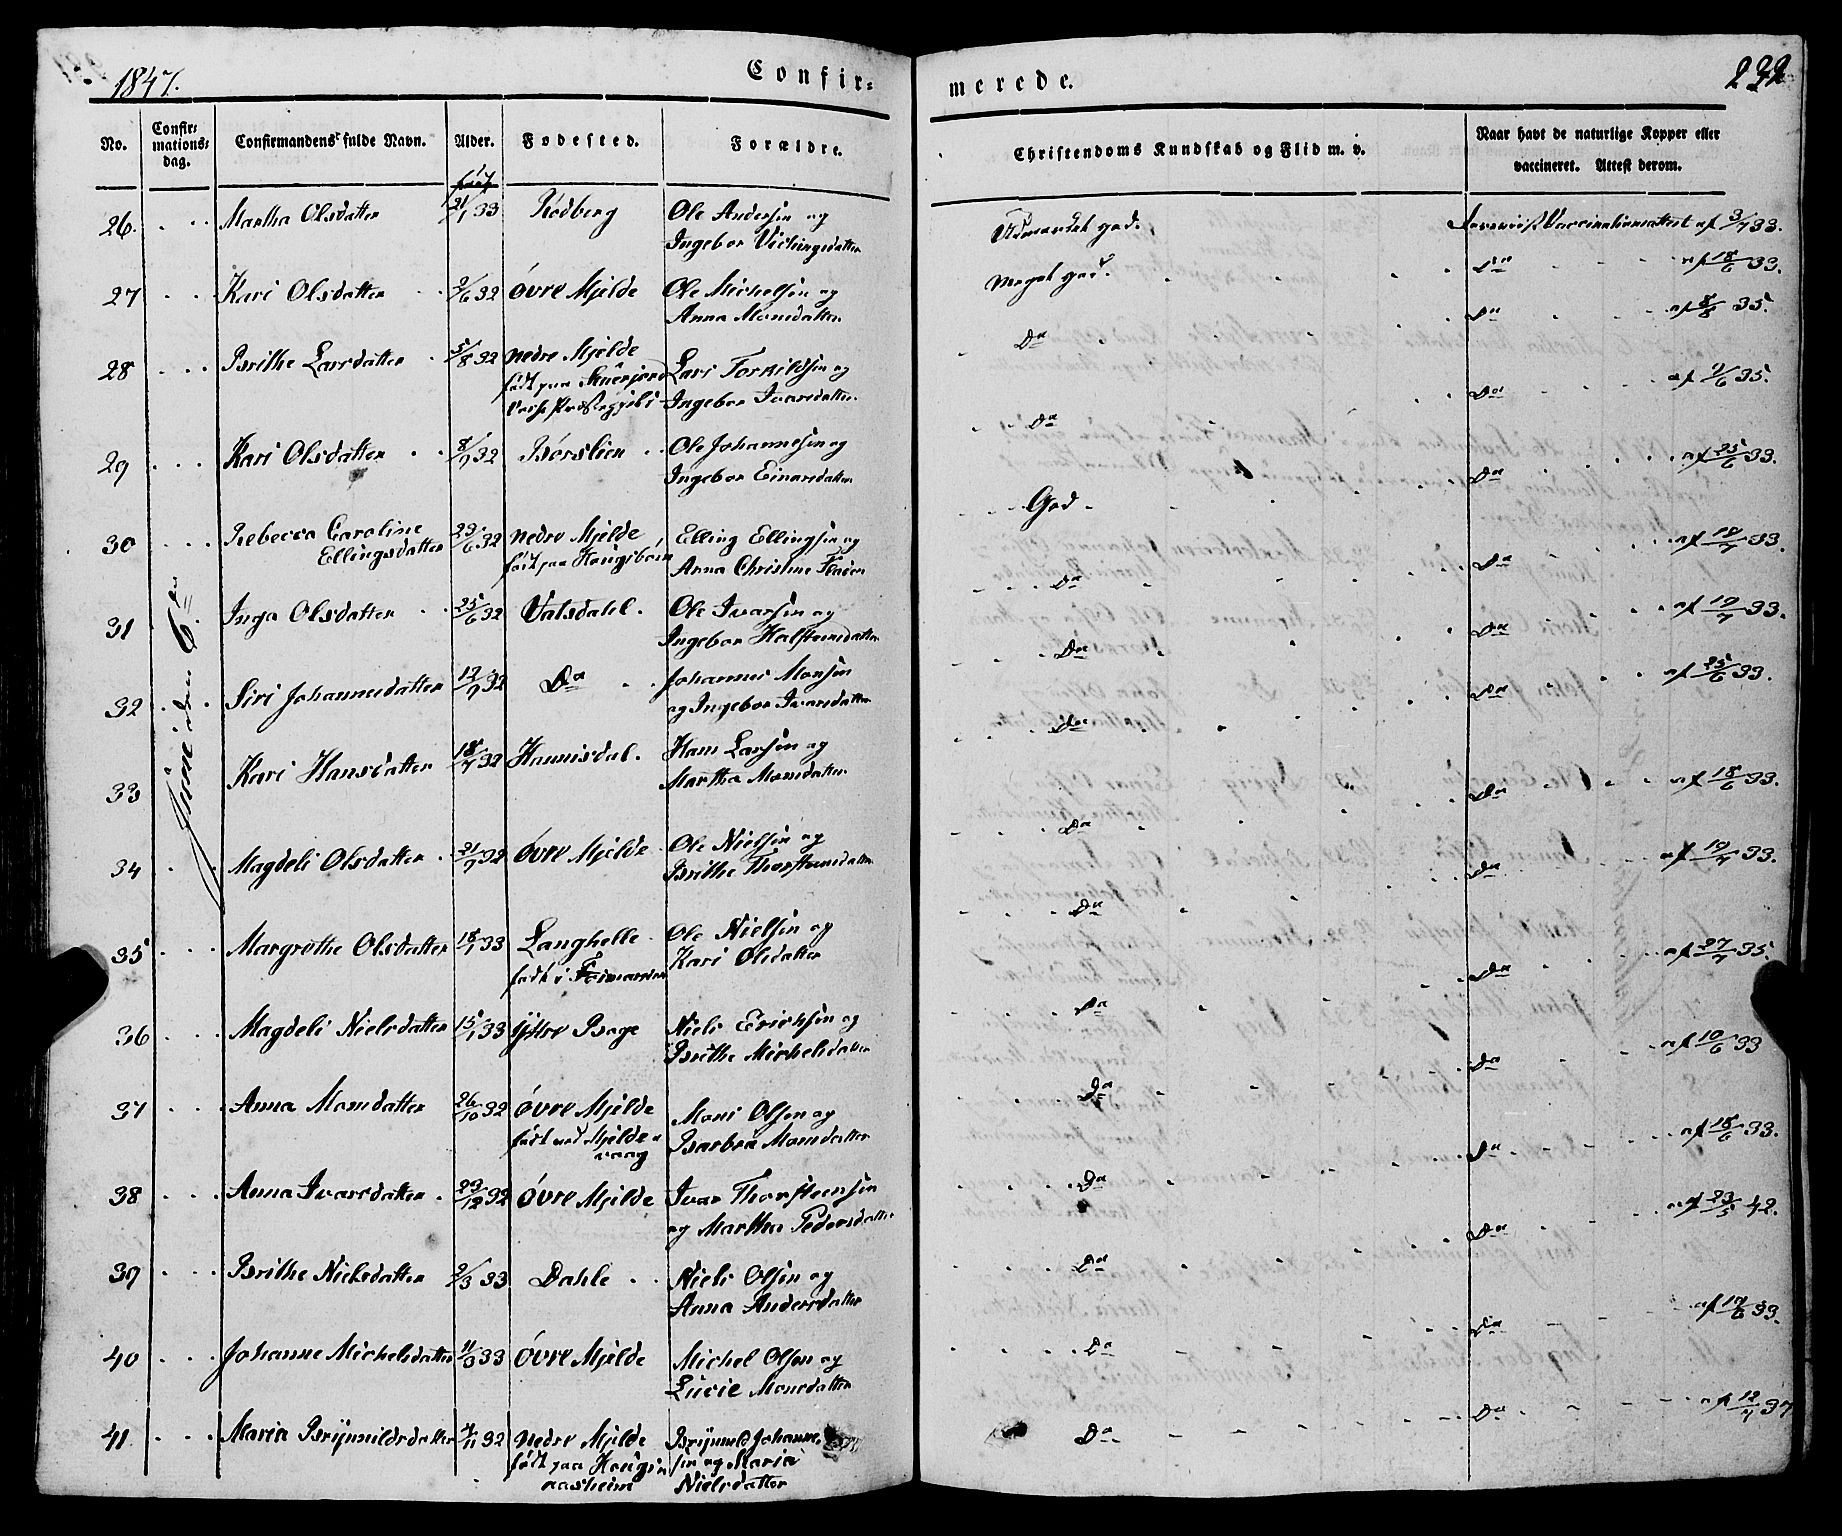 1847.
Confir-
No.
Confir-
mations-
dag.
Confirmandens fulde Navn.
Alder.
Fodested.
Forældre.
født
26. Martha Olsdatter 21/1 33 Rödberg Ole Andersen og
Ingebor Vichingsdatter
27 Kari Olsdatter 2/6 32 Övre Mjelde Ole Michelsen og
Anna Monsdatter
28 Brithe Larsdatter 5/8 32 nedre Mjelde Lars Torkildsen og
født paa
Ingebor Ivarsdatter
29 Kari Olsdatter 8/7 32 Börslien Ole Johannesen og
Ingebor Einarsdatter
30 Rebecca Caroline 23/6 32 nedre Mjelde Elling Ellingsen og
Ellingsdatter født paa
Anna Christine
31 Inga Olsdatter 25/6 32 Valsdahl. Ole Ivarsen og
Ingebor Halsteinsdatter
32 Siri Johannesdatter 12/7 32 Do Johannes Monsen
og Ingebor Ivarsdatter
33 Kari Hansdatter 18/7 32 Hannisdal. Hans Larsen og
Martha Monsdatter
34 Magdeli Olsdatter 21/7 32 Övre Mjelde Ole Nielsen og
Brithe Thorsteinsdatter
35 Margrethe Olsdatter 18/1 33 Langhelle Ole Nielsen og
født i
Kari Olsdatter
36 Magdeli Nielsdatter 15/1 33 Ystre Boge Niels Ericksen og
Brithe Michelsdatter
37 Anna Monsdatter 26/10 32 Övre Mjelde Mons Olsen og
født ved Mjelde-
vaag
Barbra Monsdatter
38 Anna Ivarsdatter 29/12 32 Övre Mjelde Ivar Thorsteensen
og Martha Pedersdatter
39 Brithe Nielsdatter 2/3 33 Dahle Niels Olsen og
Anna Andersdatter
40 Johanne Michelsdatter 11/3 33 Övre Mjelde Michel Olsen og
Lucie Monsdatter
41 Maria Brynnildsdatter 4/11 32 nedre Mjelde Brynnild Johannes-
født paa
sen og Maria
Nielsdatter
Juni den 6te
merede.
Christendoms Kundskab og Flid m. v.
Naar havt de naturlige Kopper eller
vaccineret. Attest derom.
Udmærket god. Vaccinationsattest af 3/7 33.
Meget god. Do af 18/6 33.
Do Do af 8/8 35.
Do Do af 2/6 35.
God Do af 25/6 33.
Do Do af 19/7 33.
Do Do af 19/7 33.
Do Do af 25/6 33.
Do Do af 18/6 33.
Do Do af 19/7 33.
Do Do af 27/7 35.
Do Do af 10/6 33
Do Do af 18/6 33.
Do Do af 23/5 42.
Do Do af 19/6 33.
Do Do af 12/7 37